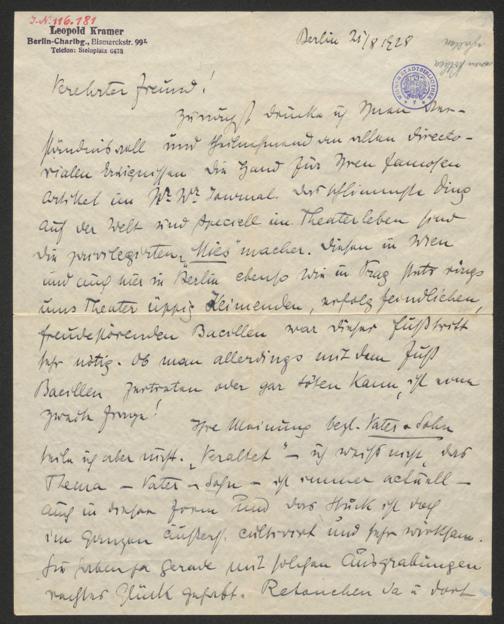 J.N. 116.181
Leopold Kramer
Berlin-Charlbg., Bismarckstr. 99I.
Telefon: Steinplatz 6478
Berlin 21/8 1928
Verehrter Freund!
Zunächst drücke ich Ihnen ver-
ständnisvoll und theilnehmend an allen directo-
rialen Ereignissen die Hand für Ihren famosen
Artikel im Nr. Wr. Journal. Das schlimmste Ding
auf der Welt und speciell im Theaterleben sind
die privilegirten "Mies"macher. Diesen in Wien
und auch hier in Berlin ebenso wie in Prag stets rings
ums Theater üppig keimenden, erfolgfeindlichen,
freudestörenden Bacillen war dieser Fußtritt
sehr nötig. Ob man allerdings mit dem Fuß
Bacillen zertreten oder gar töten kann, ist eine
zweite Frage!
Ihre Meinung bezl. Vater u Sohn
teile ich aber nicht. "Veraltet" – ich weiß nicht, das
Thema – Vater u Sohn – ist immer actuell –
auch in dieser Form und das Stück ist doch
im ganzen äußerst cultivirt und sehr wirksam.
Sie haben ja gerade mit solchen Ausgrabungen
rechtes Glück gehabt. Retouchen da u dort